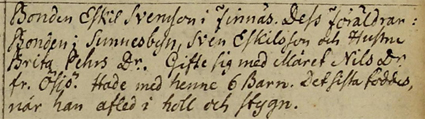 Bonden Eskil Svensson i Finnäs. Dess föräldrar:
Bonden i Sunnesbyn, Sven Eskilsson och Hustru
Brita Pehrs Dr. Gifte sig med Maret Nils Dr
fr. Ösjö. Hade med henne 6 Barn. Det sista föddes,
när han afled i håll och stygn.